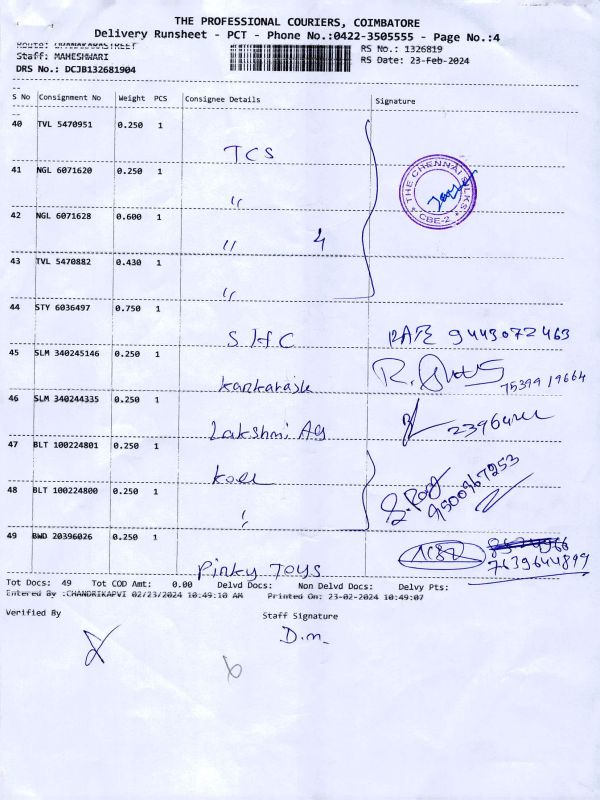 THE PROFESSIONAL COURIERS, COIMBATORE
Delivery Runsheet - PCT - Phone No.:0422-3505555 - Page No.:4
RS No.: 1326819
Staff: MAHESHWARI
RS Date: 23-Feb-2024
DRS No.: DCJB132681904
S No Consignment No Weight PCS Consignee Details Signature
40 TVL 5470951 0.250 1
TCS
41 NGL 6071620 0.250 1
"
THE CHENNAI SILKS
CBE-2
42 NGL 6071628 0.600 1
" 4
43 TVL 5470882 0.430 1
"
44 STY 6036497 0.750 1
SHC 9443072463
45 SLM 340245146 0.250 1
75399 19664
46 SLM 340244335 0.250 1
Lakshmi Ag
47 BLT 100224801 0.250 1
9500967253
48 BLT 100224800 0.250 1
49 BWD 20396026 0.250 1
Pinky Toys 7639644899
Tot Docs: 49 Tot COD Amt: 0.00 Delvd Docs: Non Delvd Docs: Delvy Pts:
Entered By :CHANDRIKAPVI 02/23/2024 10:49:10 AM Printed On: 23-02-2024 10:49:07
Verified By Staff Signature
D.m